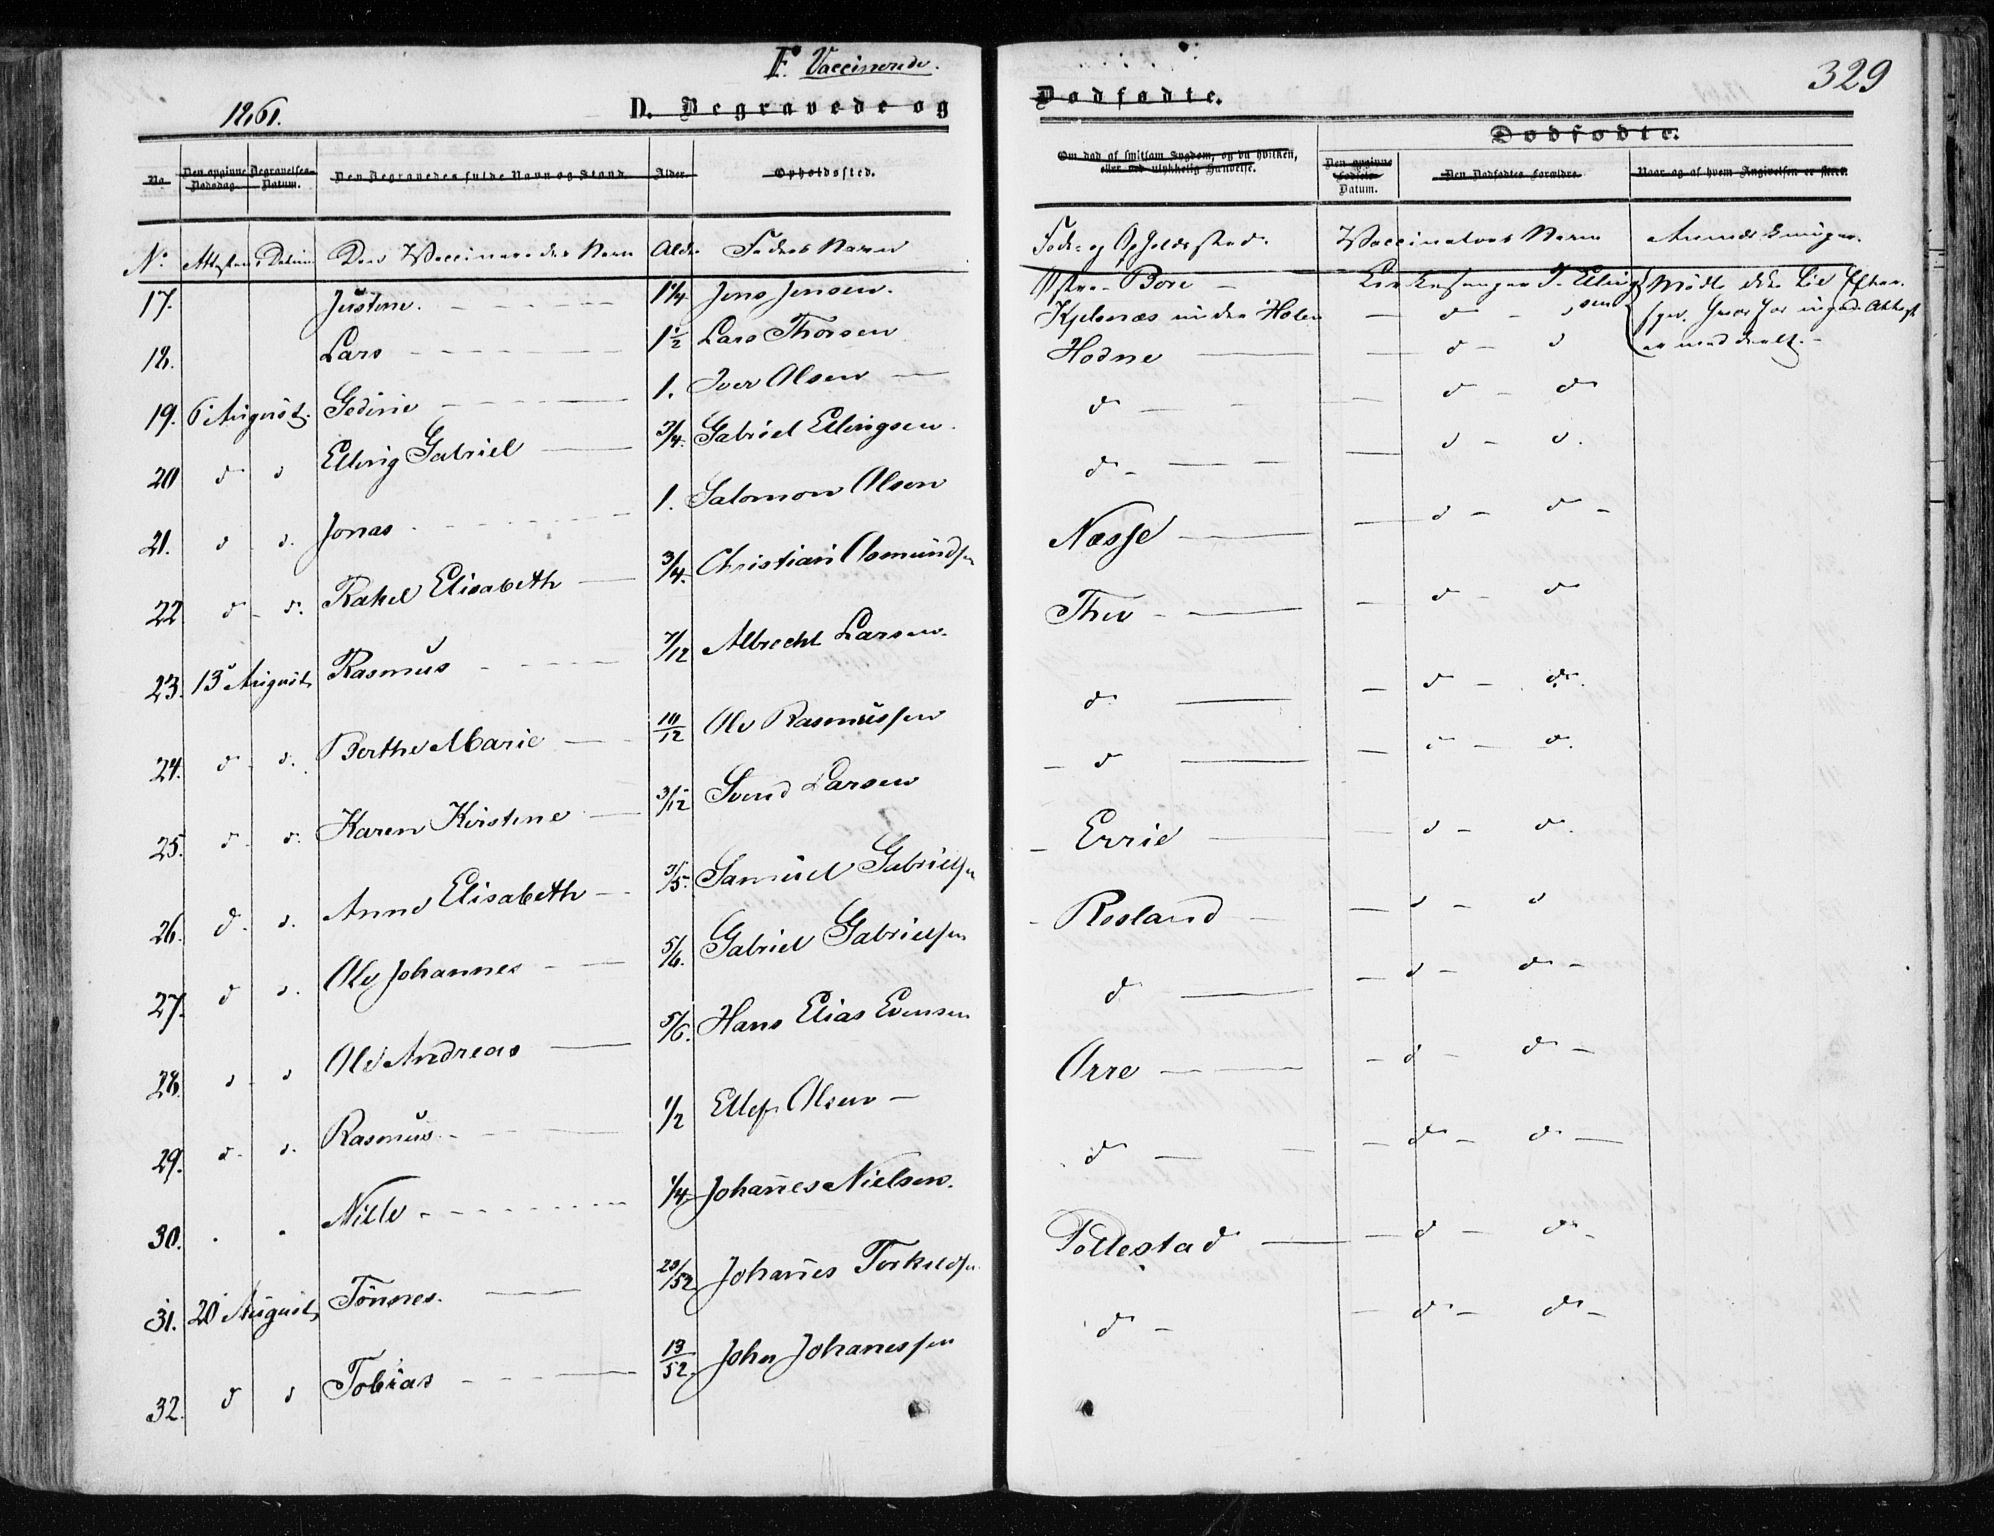 F. Vaccinerede.
1861.
D. Begravede og
Dødfødte.
329
Dødfødte.
No. Den opgivne Dødsdag. Begravelses-Datum. Den Begravedes fulde Navn og Stand. Alder. Opholdssted.
Om død af smitsom Sygdom, og da hvilken, eller ved ulykkelig Hændelse. Den opgivne Fødsels-Datum. Den Dødfødtes Forældre. Naar og af hvem Angivelsen er skeet.
No. Attestens Datum Den Vaccineredes Navn Alder Faders Navn
Føde- og Opholdssted. Vaccinateurs Navn Anmærkninger.
17. Justine. 1 1/4 Jens Jensen. Bore
18. Lars 1 1/2 Lars Thorsen Holen d d
19. 6 August. Gedine 1. Iver Olsen Hodne d d
20 d d Elling Gabriel 3/4. Gabriel Ellingsen. d d d
21. d d. Jonas 1. Salomon Olsen d d d.
22 d d. Rakel Elisabeth 3/4. Christian Asmundsen Næsse d d
23. 13 August Rasmus 7/12 Albrecht Larsen. Thu d d
24. d d. Berthe Marie 10/12 Ole Rasmussen d d d.
25. d d. Karen Kirstine 3/12 Svend Larsen d d d.
26. d. d. Anne Elisabeth 3/5. Samuel Gabrielsen Errie d d.
27. d d. Ole Johannes 5/6. Gabriel Gabrielsen Rosland d d
28. d d Ole Andreas 5/6. Hans Elias Evensen d d d
29. d. d. Rasmus 1/2 Ellef Olsen Orre d d
30. Nille 1/4 Johannes Nielsen. d d d
31. 20 August Tönnes. 20/52 Johannes Torkeldsen Pollestad d d
32. d d Tobias 13/52. John Johannessen d d d